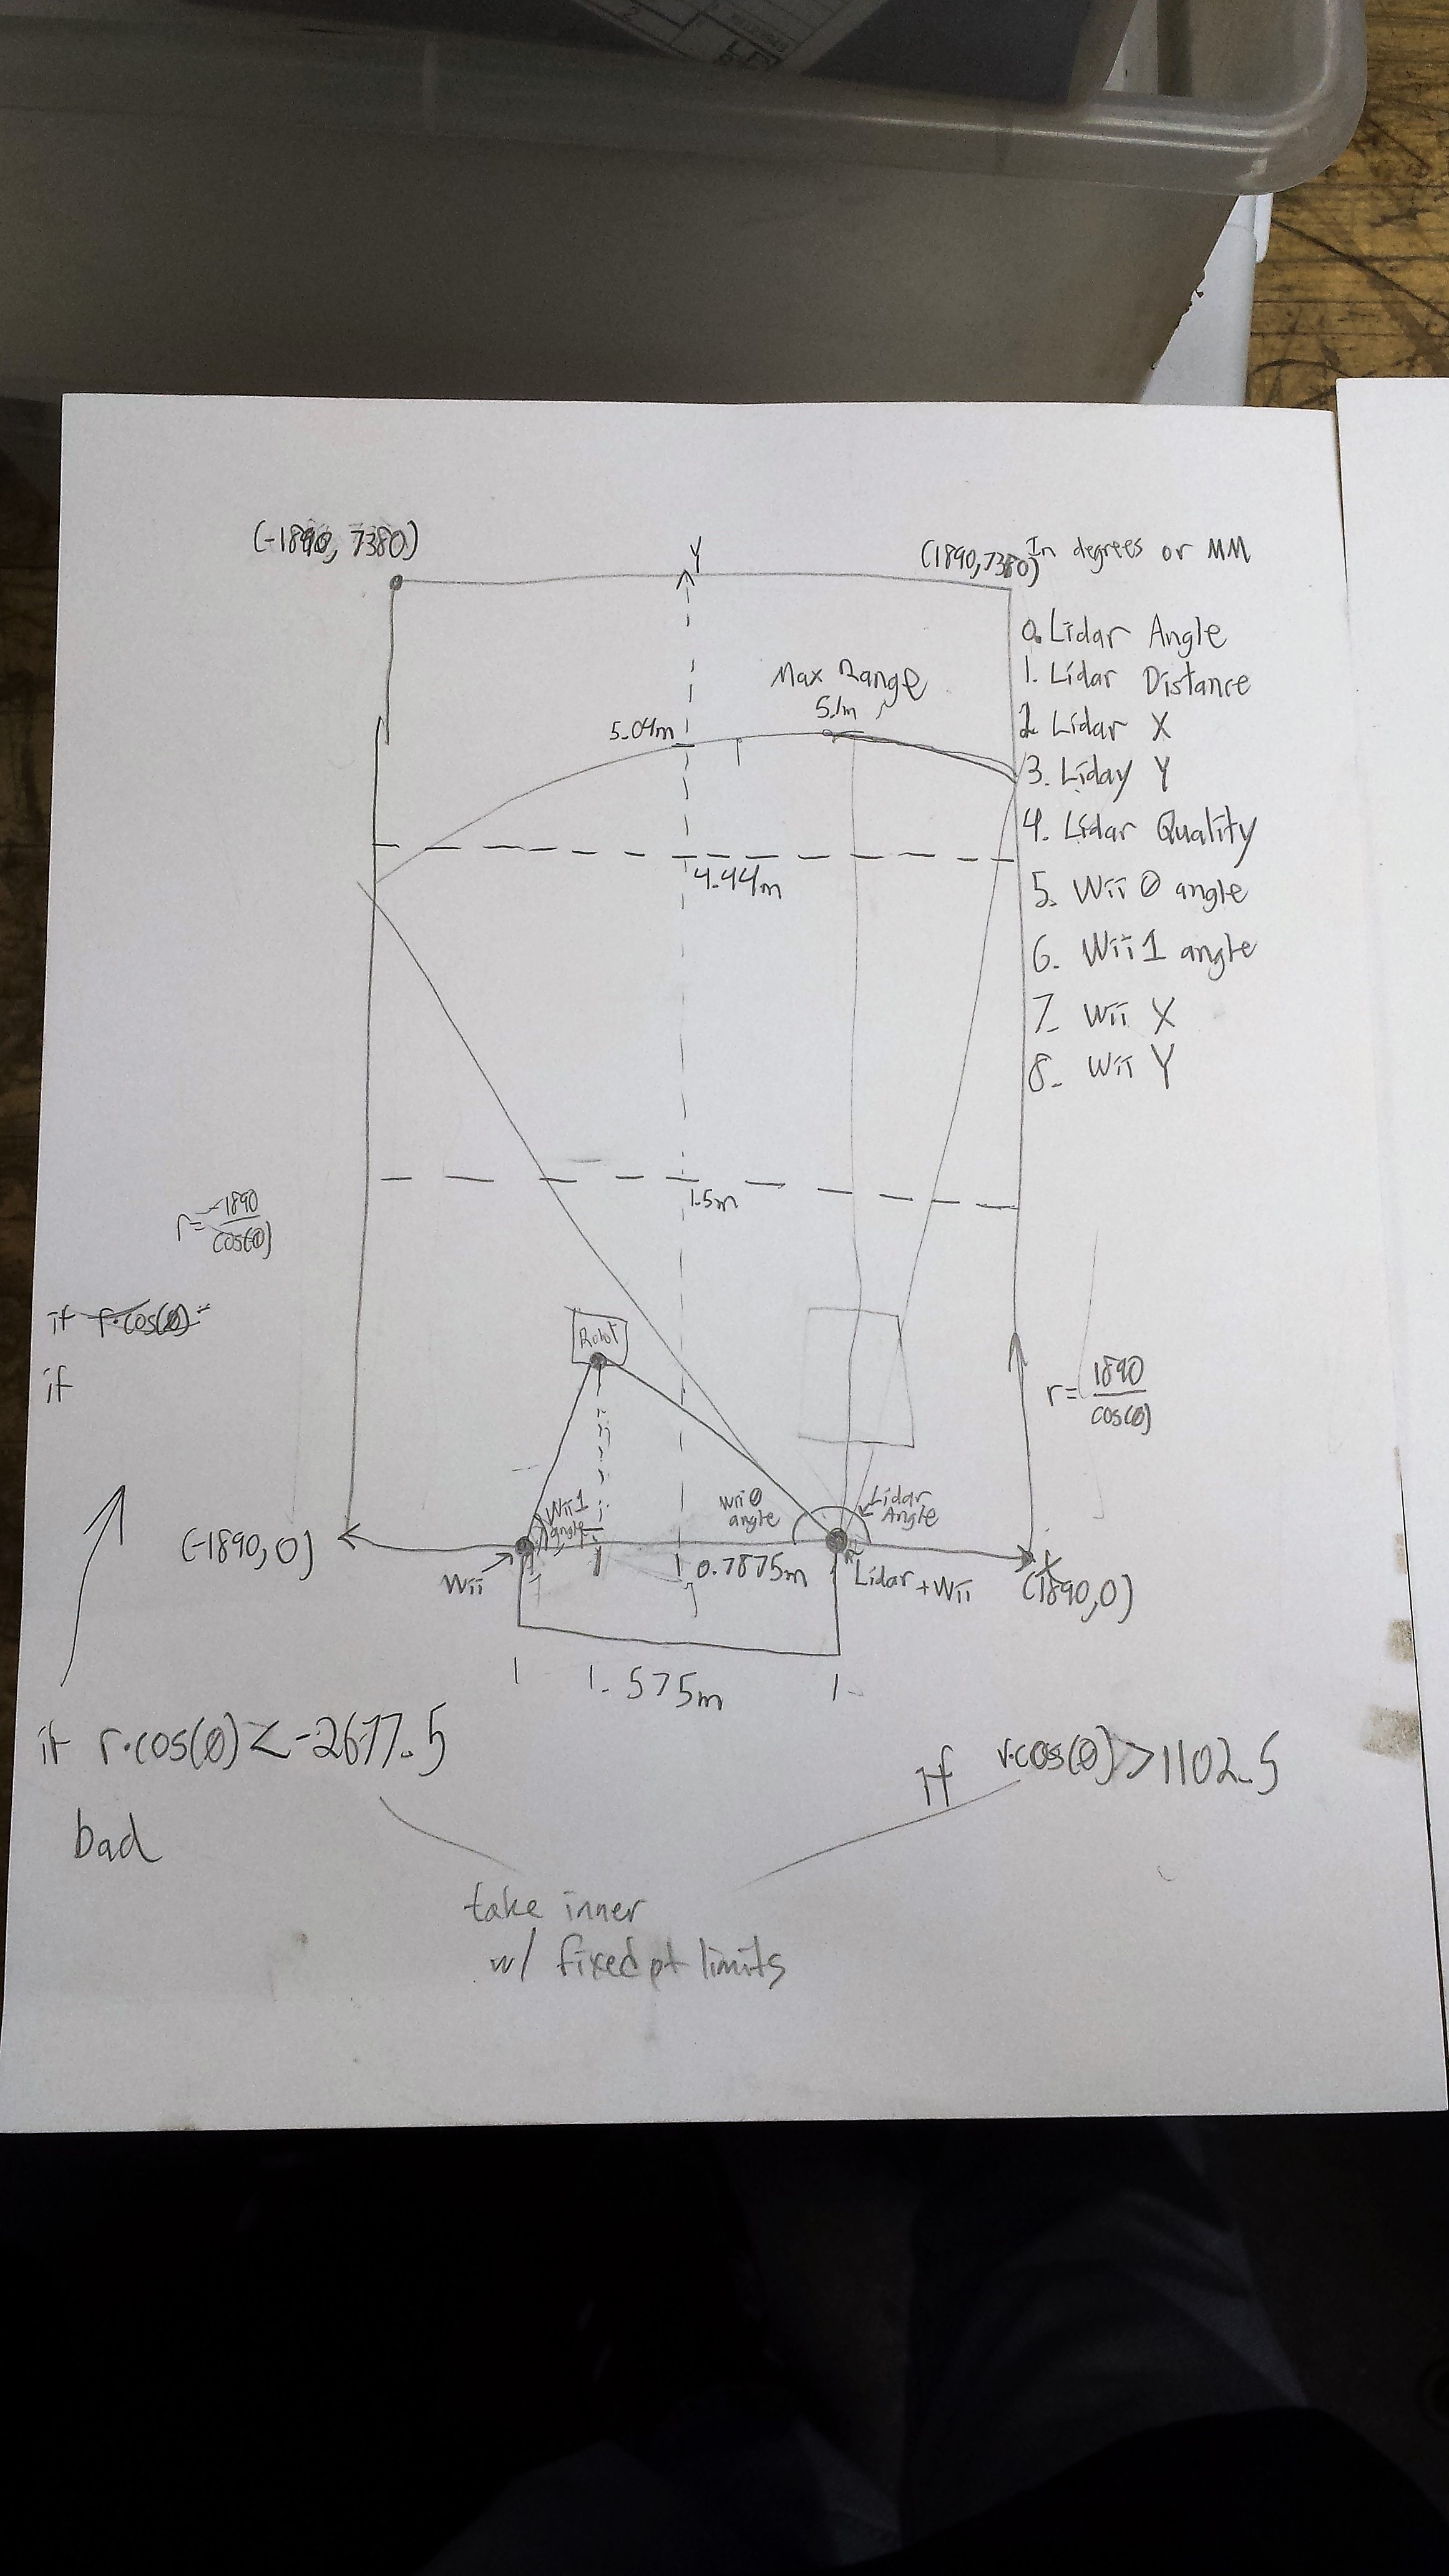 (-1890, 7380)
Y
(1890,7380)
In degrees or MM
0. Lidar Angle
1. Lidar Distance
2. Lidar X
3. Liday Y
4. Lidar Quality
5. Wii 0 angle
6. Wii 1 angle
7. Wii X
8. Wii Y
Max Range
5.1m
5.04m
4.44m
1.5m
r = -1890
cos(θ)
if r·cos(θ)=
if
Robot
r = 1890
cos(θ)
Wii 1
angle
Wii 0
angle
Lidar
Angle
(-1890, 0)
Wii
0.7875m
Lidar + Wii
X
(1890,0)
1.575m
if r·cos(θ) < -2677.5
bad
if r·cos(θ) > 1102.5
take inner
w/ fixed pt limits